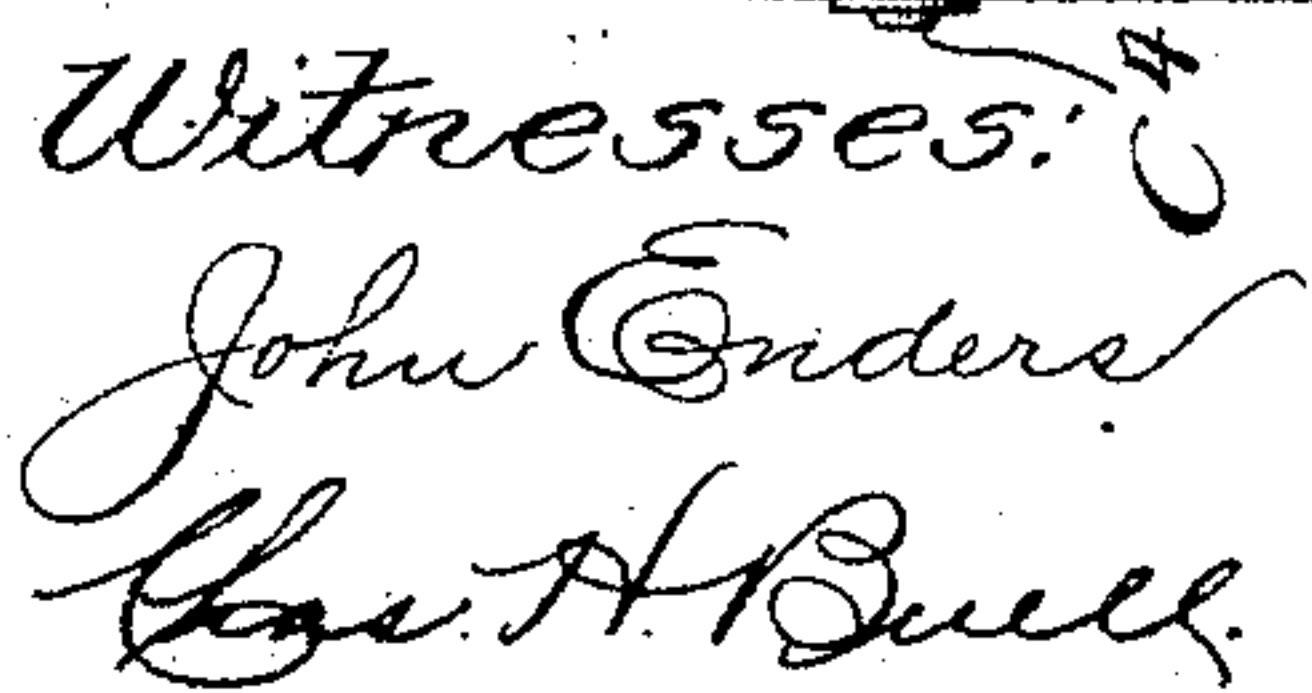 Witnesses:
John Enders
Chas. H. Buell.